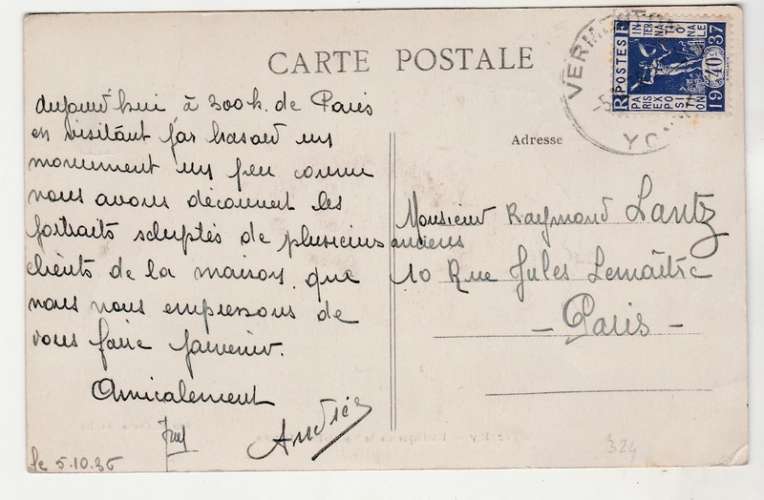 CARTE POSTALE
Adresse
aujourd'hui à 300 k. de Paris
en visitant par hasard un
monument un peu connu
nous avons découvert les
portraits scluptés de plusieurs anciens
clients de la maison que
nous nous empressons de
vous faire parvenir.
Amicalement
André
le 5.10.36
Monsieur Raymond Lantz
10 Rue Jules Lemaître
- Paris -
VERM
YO
RF POSTES
INTERNATIONALE
PARIS EXPOSITION
1937
40
324